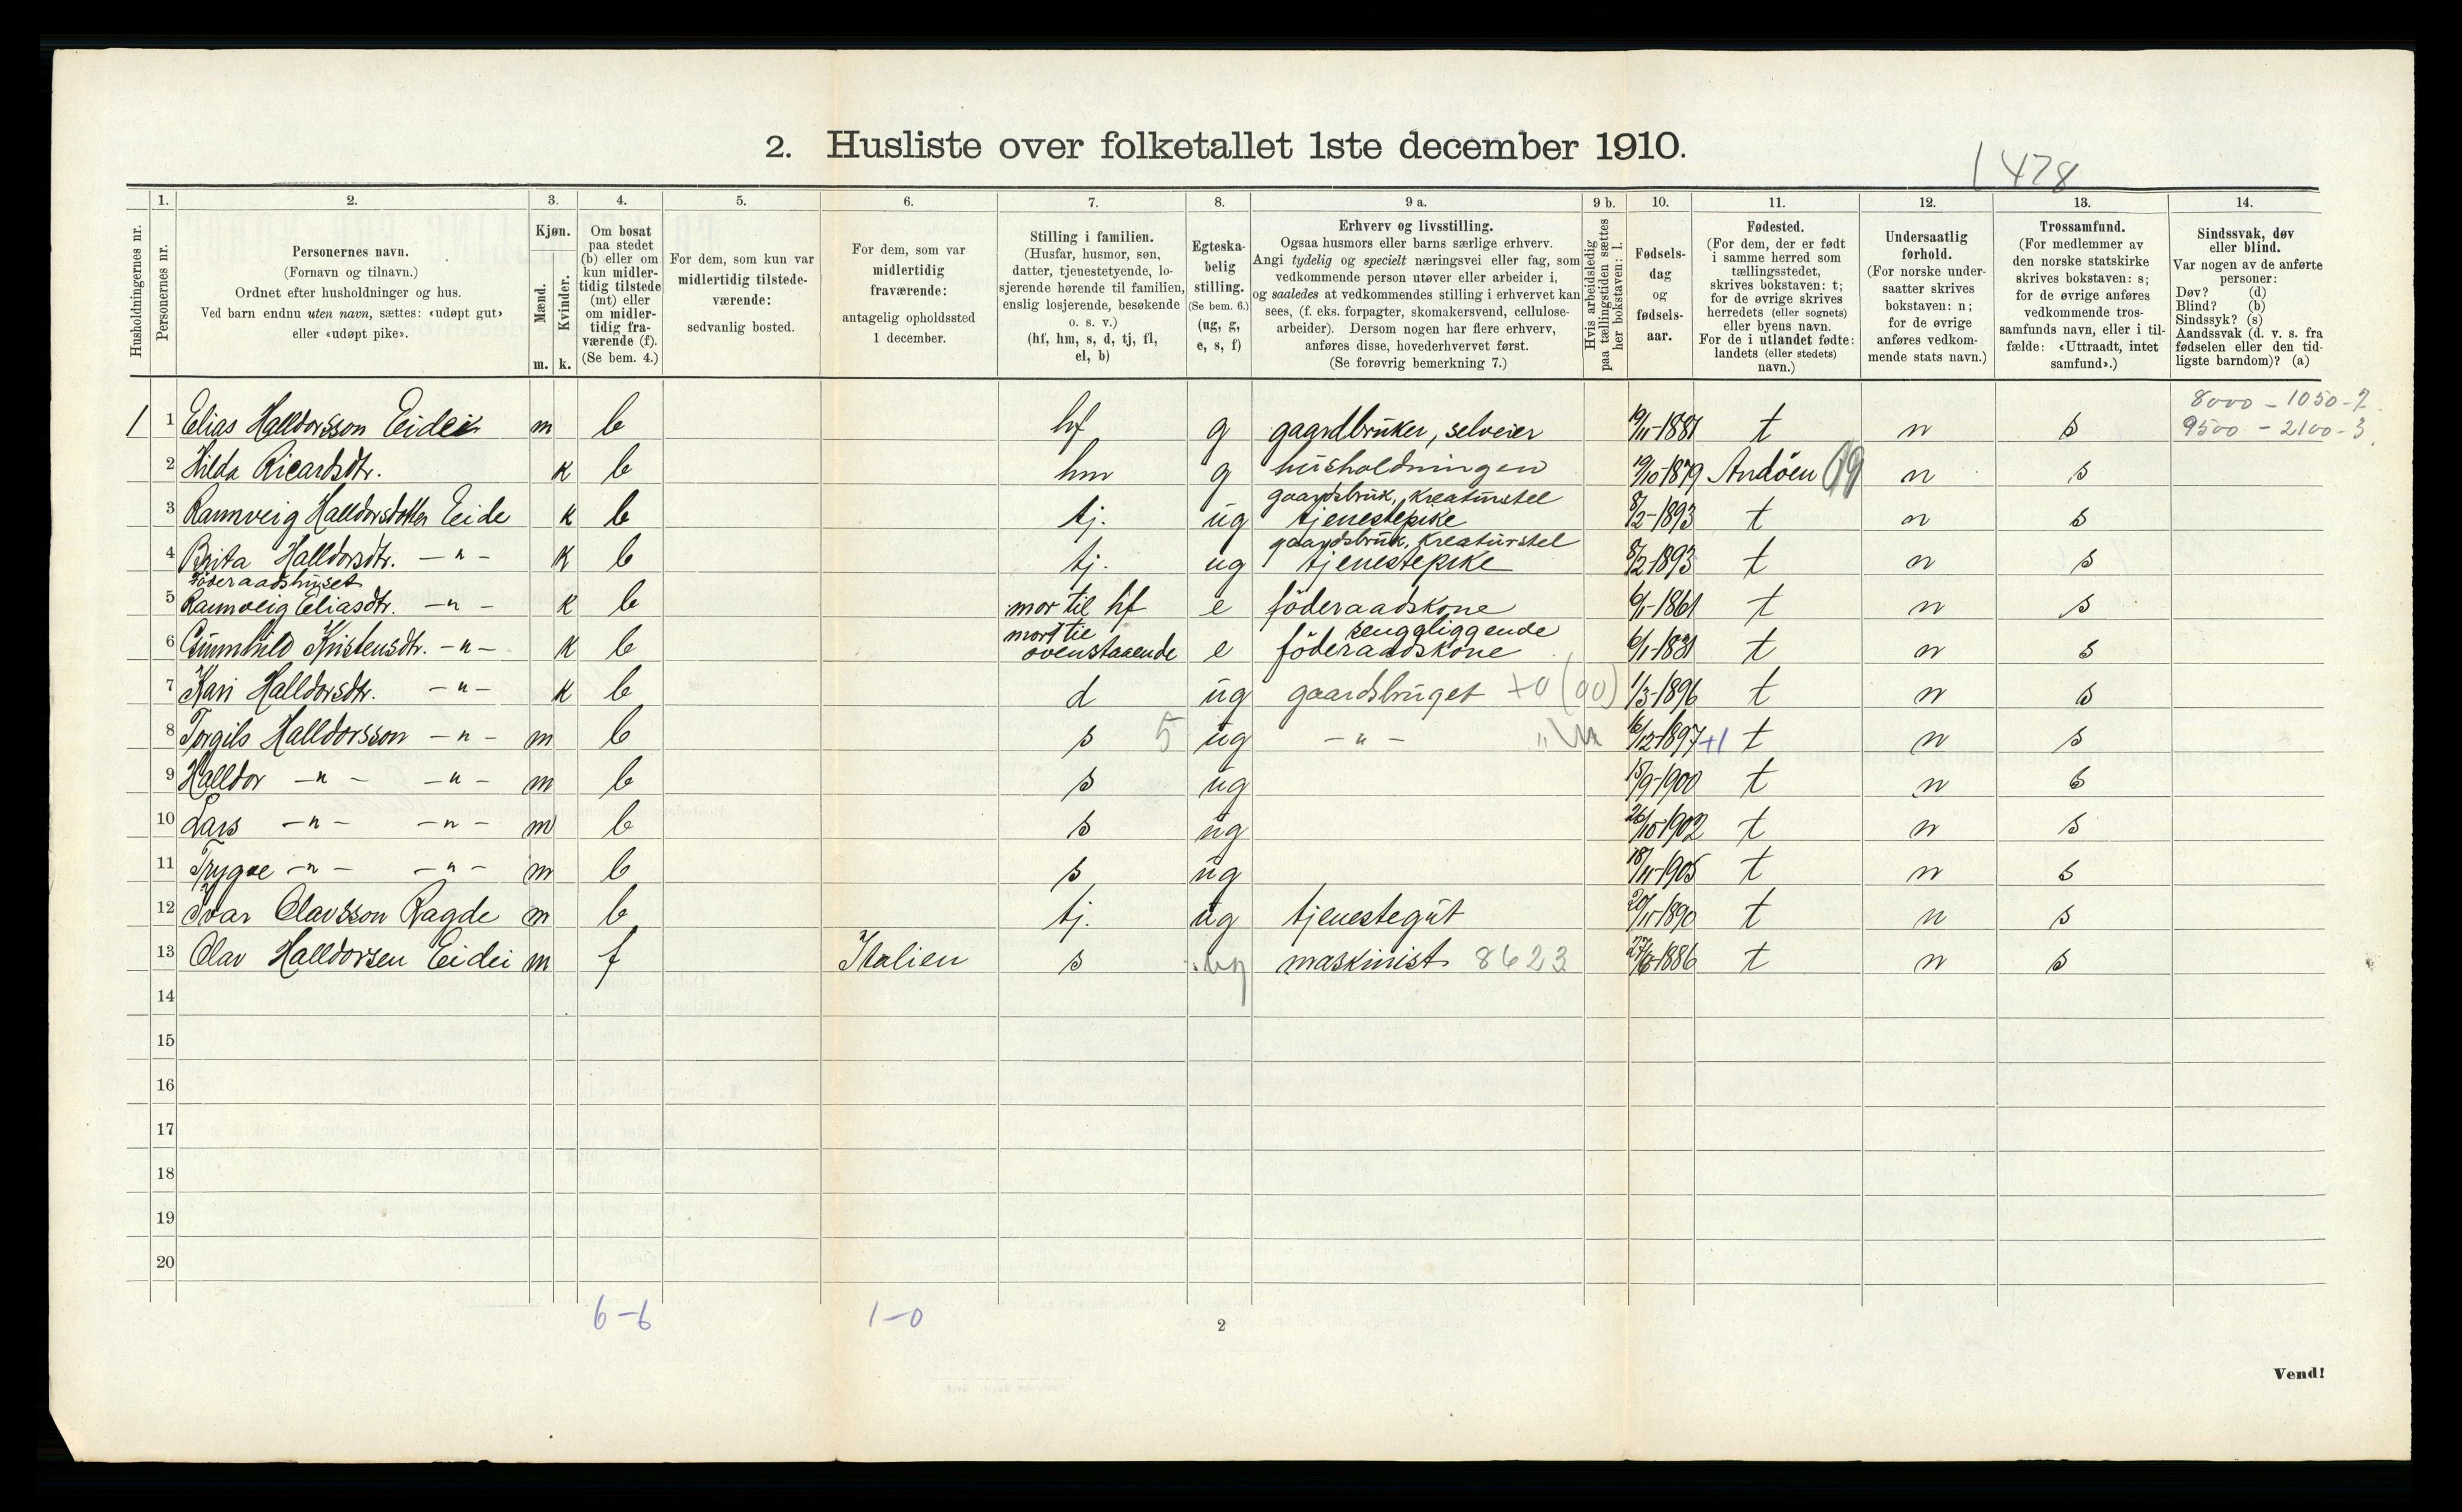 2. Husliste over folketallet 1ste december 1910.
1478
1. 2. 3. 4. 5. 6. 7. 8. 9 a. 9 b. 10. 11. 12. 13. 14.
Husholdningernes nr.
Personernes nr.
Personernes navn.
(Fornavn og tilnavn.)
Ordnet efter husholdninger og hus.
Ved barn endnu uten navn, sættes: «udøpt gut»
eller «udøpt pike».
Kjøn.
Mænd.
Kvinder.
m. k.
Om bosat
paa stedet
(b) eller om
kun midler-
tidig tilstede
(mt) eller
om midler-
tidig fra-
værende (f).
(Se bem. 4.)
For dem, som kun var
midlertidig tilstede-
værende:
sedvanlig bosted.
For dem, som var
midlertidig
fraværende:
antagelig opholdssted
1 december.
Stilling i familien.
(Husfar, husmor, søn,
datter, tjenestetyende, lo-
sjerende hørende til familien,
enslig losjerende, besøkende
o. s. v.)
(hf, hm, s, d, tj, fl,
el, b)
Egteska-
belig
stilling.
(Se bem. 6.)
(ug, g,
e, s, f)
Erhverv og livsstilling.
Ogsaa husmors eller barns særlige erhverv.
Angi tydelig og specielt næringsvei eller fag, som
vedkommende person utøver eller arbeider i,
og saaledes at vedkommendes stilling i erhvervet kan
sees, (f. eks. forpagter, skomakersvend, cellulose-
arbeider). Dersom nogen har flere erhverv,
anføres disse, hovederhvervet først.
(Se forøvrig bemerkning 7.)
Hvis arbeidsledig
paa tællingstiden sættes
her bokstaven: l.
Fødsels-
dag
og
fødsels-
aar.
Fødested.
(For dem, der er født
i samme herred som
tællingsstedet,
skrives bokstaven: t;
for de øvrige skrives
herredets (eller sognets)
eller byens navn.
For de i utlandet fødte:
landets (eller stedets)
navn.)
Undersaatlig
forhold.
(For norske under-
saatter skrives
bokstaven: n;
for de øvrige
anføres vedkom-
mende stats navn.)
Trossamfund.
(For medlemmer av
den norske statskirke
skrives bokstaven: s;
for de øvrige anføres
vedkommende tros-
samfunds navn, eller i til-
fælde: «Uttraadt, intet
samfund».)
Sindssvak, døv
eller blind.
Var nogen av de anførte
personer:
Døv? (d)
Blind? (b)
Sindssyk? (s)
Aandssvak (d. v. s. fra
fødselen eller den tid-
ligste barndom)? (a)
8000 - 1050 - 2
1 1 Elias Halldorsson Eidei m b hf g gaardbruker, selveier 19/11-1881 t n s 9500 - 2100 - 3
2 Hilda Ricardsdtr. k b hm g husholdningen 19/10-1879 Andöen n s
gaardsbruk, kreaturstel
3 Rannveig Halldorsdotter Eide k b tj. ug tjenestepike 8/2-1893 t n s
gaardsbruk, kreaturstel
4 Brita Halldorsdtr. - " - k b tj. ug tjenestepike 8/2-1893 t n s
Föderaadshuset
5 Rannveig Eliasdtr. - " - k b mor til hf e föderaadskone 6/1-1861 t n s
mor til sengeliggende
6 Gunnhild Kristensdtr. - " - k b ovenstaaende e föderaadskone 6/1-1831 t n s
7 Kari Halldorsdtr. - " - k b d ug gaardsbruget +0 (00) 1/3-1896 t n s
8 Torgils Halldorsson - " - m b s 5 ug - " - 16/12-1897 +1 t n s
9 Halldor - " - - " - m b s ug 15/9-1900 t n s
10 Lars - " - - " - m b s ug 26/10-1902 t n s
11 Trygve - " - - " - m b s ug 18/11-1905 t n s
12 Ivar Olavsson Ragde m b tj. ug tjenestegut 20/11-1890 t n s
13 Olav Halldorsen Eidei m f Italien s ug maskinist 8623 27/6-1886 t n s
14
15
16
17
18
19
20
6-6 1-0
2
Vend!